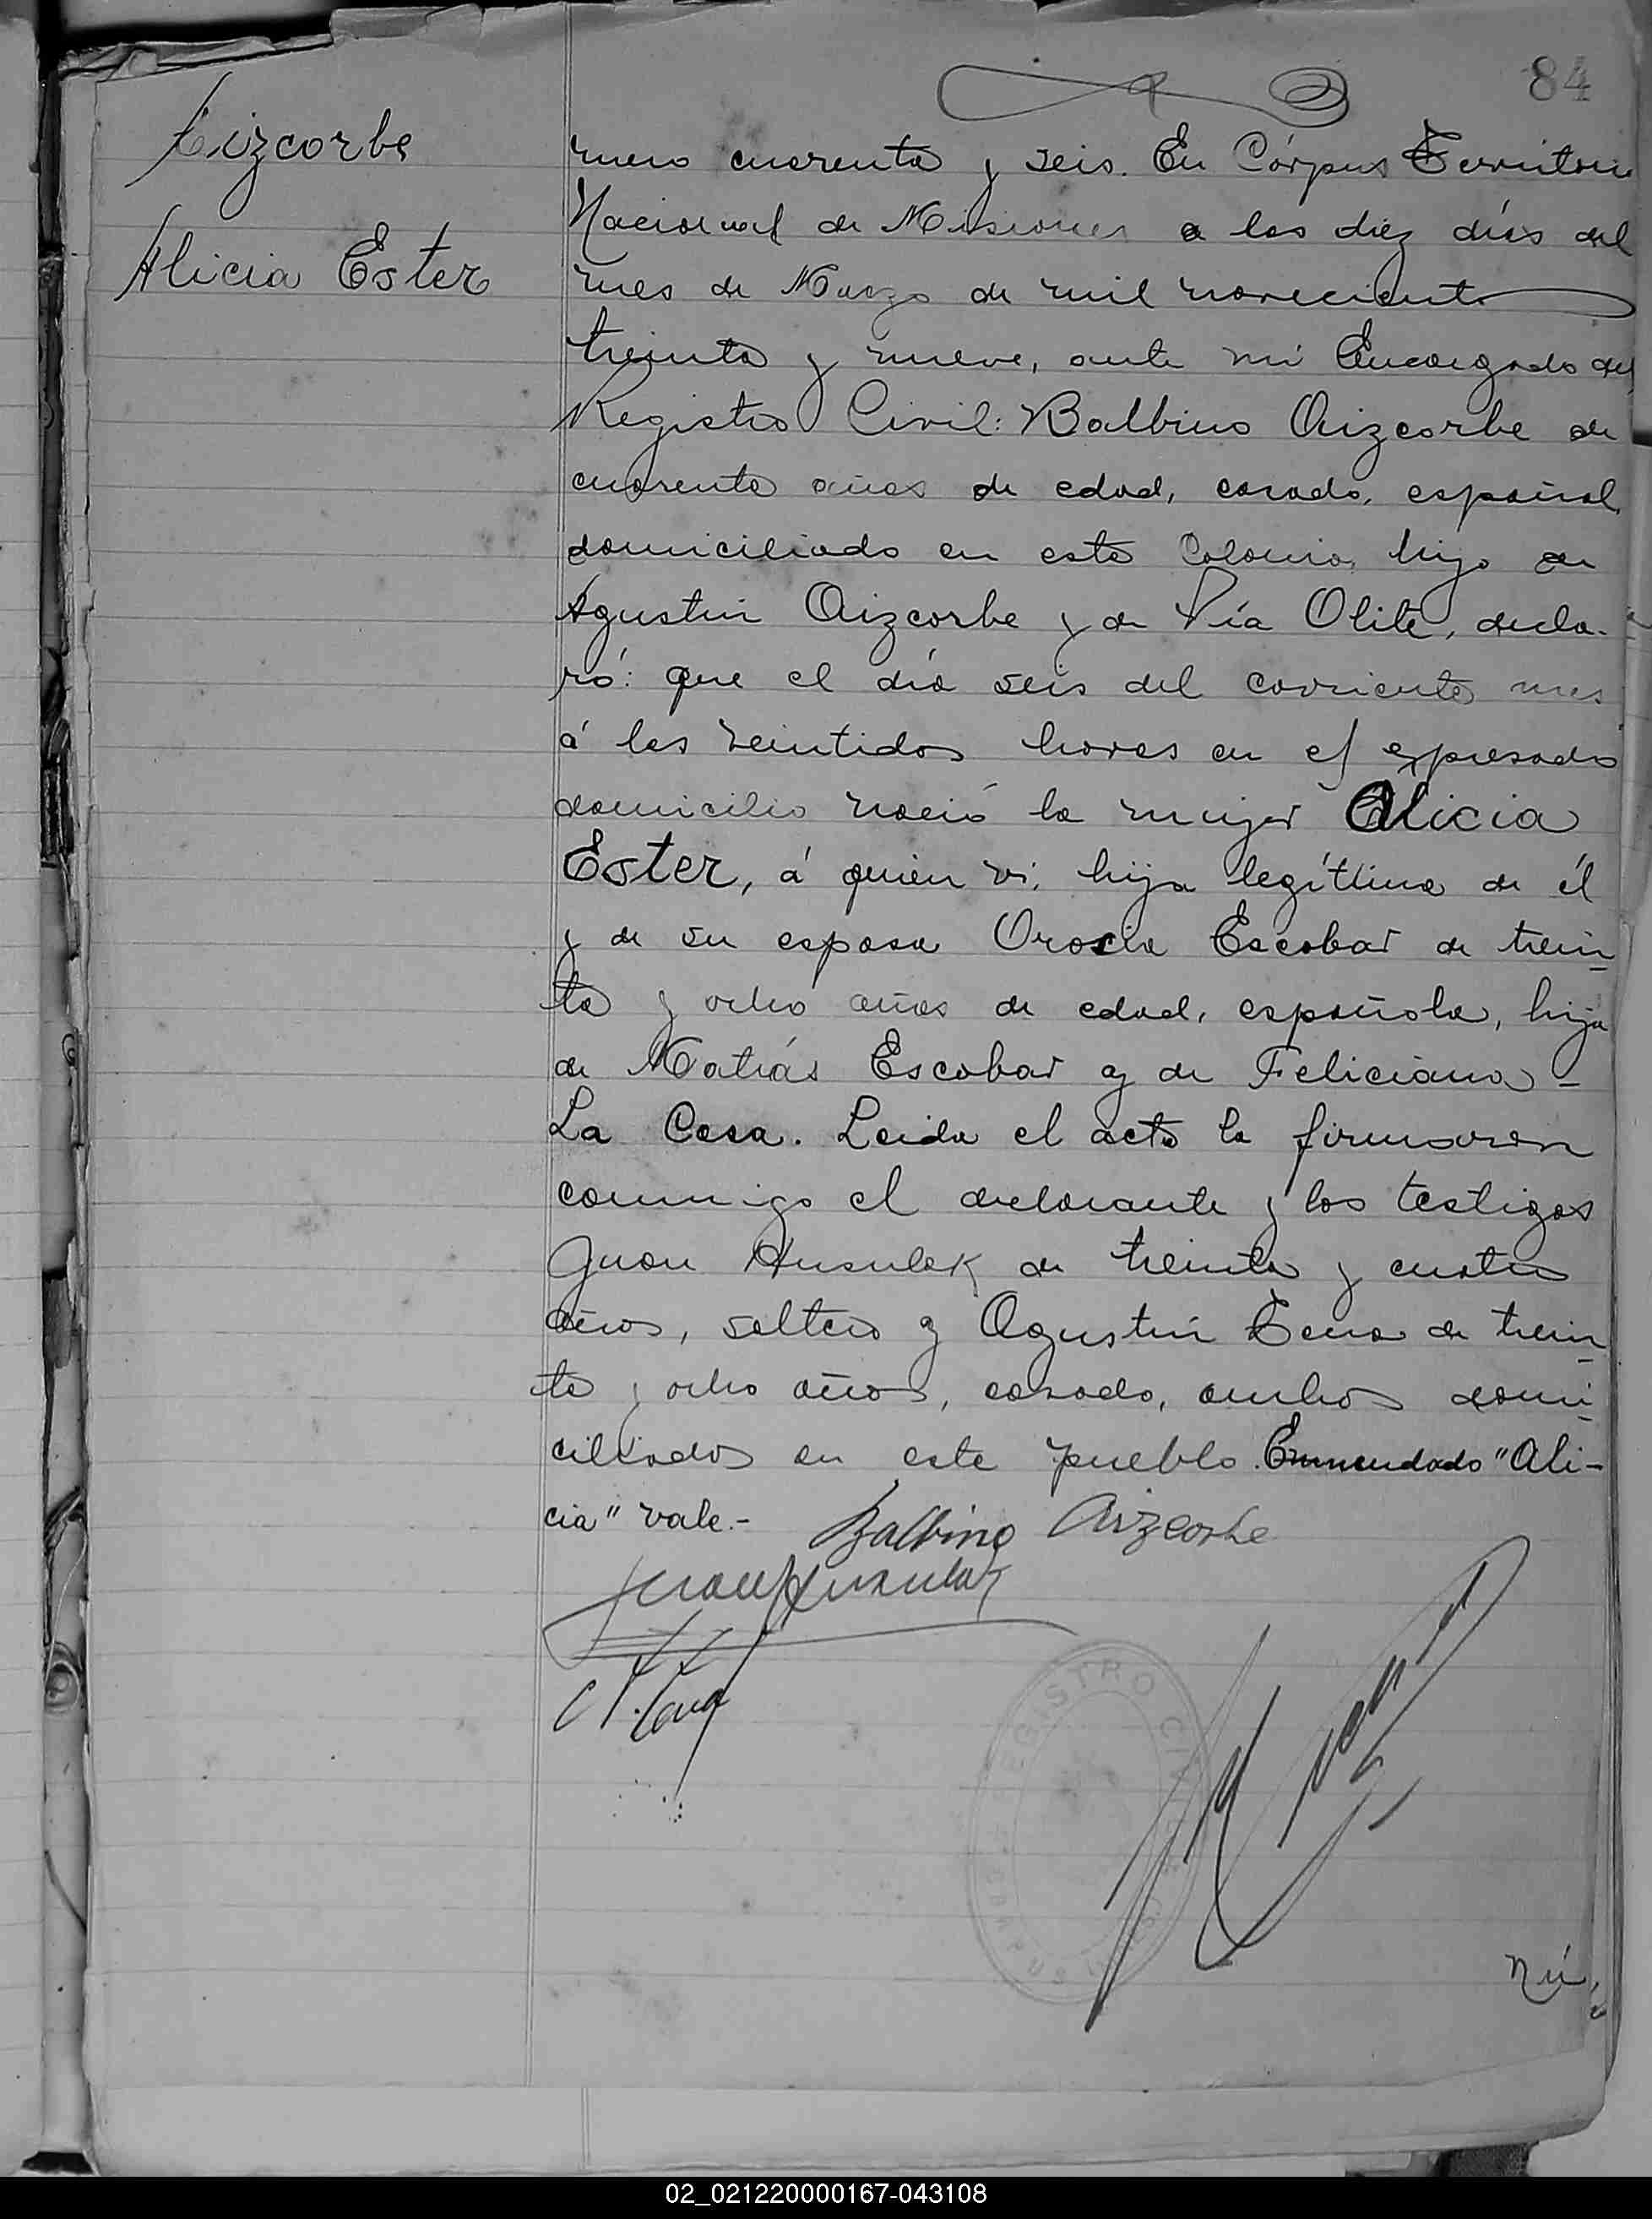 84
Aizcorbe
Alicia Ester
mero cuarenta y seis. En Córpus Territorio
Nacional de Misiones a los diez días del
mes de Marzo de mil novecientos
treinta y nueve, ante mi Encargado del
Registro Civil: Balbino Aizcorbe de
cuarenta años de edad, casado, español,
domiciliado en esta Colonia, hijo de
Agustin Aizcorbe y de Pía Olite, decla-
ró: que el día seis del corriente mes
á las veintidos horas en el expresado
domicilio nació la mujer Alicia
Ester, á quien vi, hija legítima de él
y de su esposa Orosia Escobar de trein
ta y ocho años de edad, española, hija
de Matías Escobar y de Feliciana -
La Casa. Leida el acta la firmaron
conmigo el declarante y los testigos
Juan Husulak de treinta y cuatro
años, soltero y Agustín Tena de trein
ta y ocho años, casado, ambos domi
ciliados en este pueblo. Enmendado "Ali-
cia" vale.- Balbino Aizcorbe
Juan Husulak
REGISTRO CIVIL
Nú
02_021220000167-043108